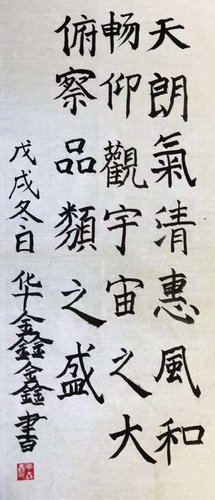 天朗氣清惠風和
暢仰觀宇宙之大
俯察品類之盛
戊戌冬日 华鑫鑫書